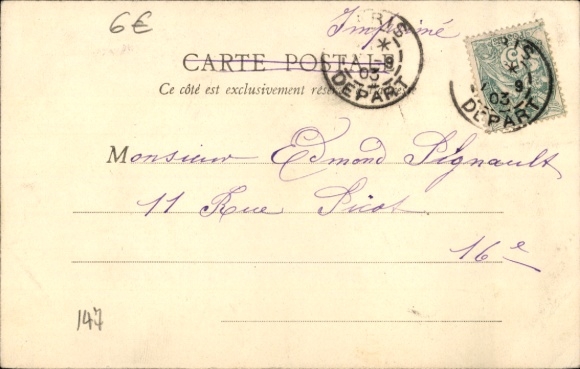 6€
Imprimé
CARTE POSTALE
Ce côté est exclusivement
PARIS
9
03
DEPART
RIS
9
03
DEPART
Monsieur Edmond Pignault
11 Rue Picot.
16e
147